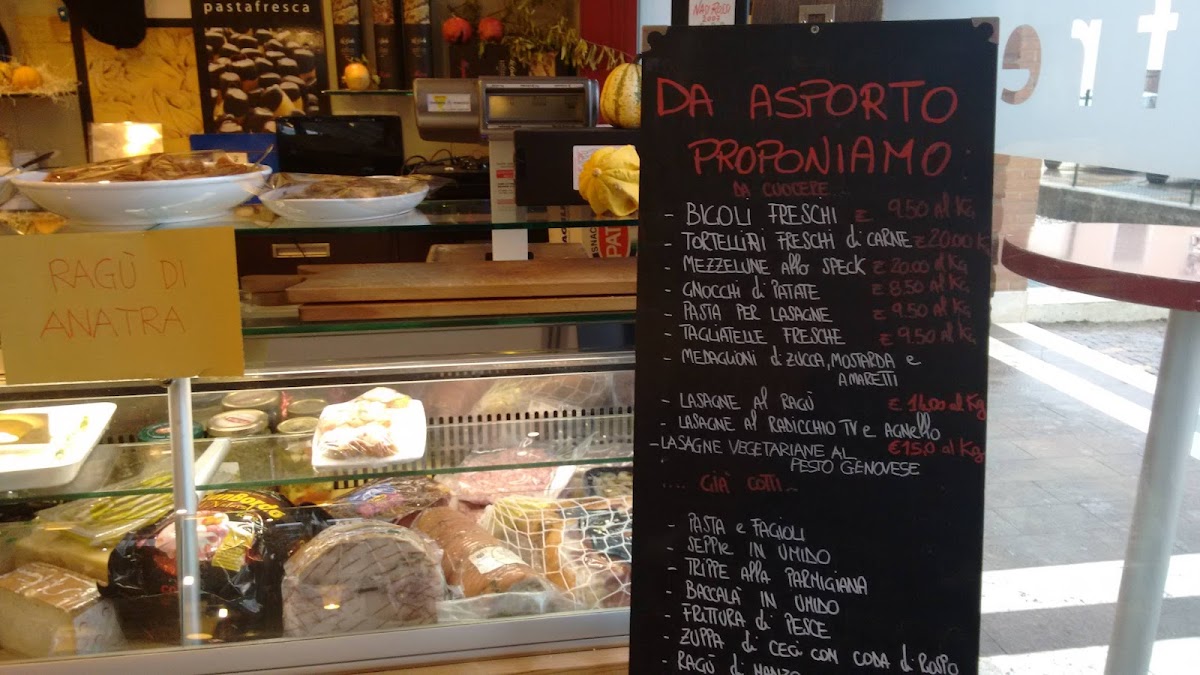 pastafresca
RAGÙ DI
ANATRA
DA ASPORTO
PROPONIAMO
DA CUOCERE...
- BIGOLI FRESCHI € 9.50 al Kg
- TORTELLINI FRESCHI di CARNE € 20.00 K
- MEZZELUNE allo SPECK € 20.00 al Kg
- GNOCCHI di PATATE € 8.50 al Kg
- PASTA PER LASAGNE € 9.50 al Kg
- TAGLIATELLE FRESCHE € 9.50 al K
- MEDAGLIONI di ZUCCA, MOSTARDA e
AMARETTI
- LASAGNE al RAGÙ € 14.00 al Kg
- LASAGNE al RADICCHIO TV e AGNELLO
- LASAGNE VEGETARIANE AL €15,0 al Kg
PESTO GENOVESE
.... GIÀ COTTI...
- PASTA e FAGIOLI
- SEPPIE IN UMIDO
- TRIPPE alla PARMIGIANA
- BACCALA' IN UMIDO
- FRITTURA di PESCE
- ZUPPA di CECI CON CODA di ROSPO
- RAGÙ di MANZO